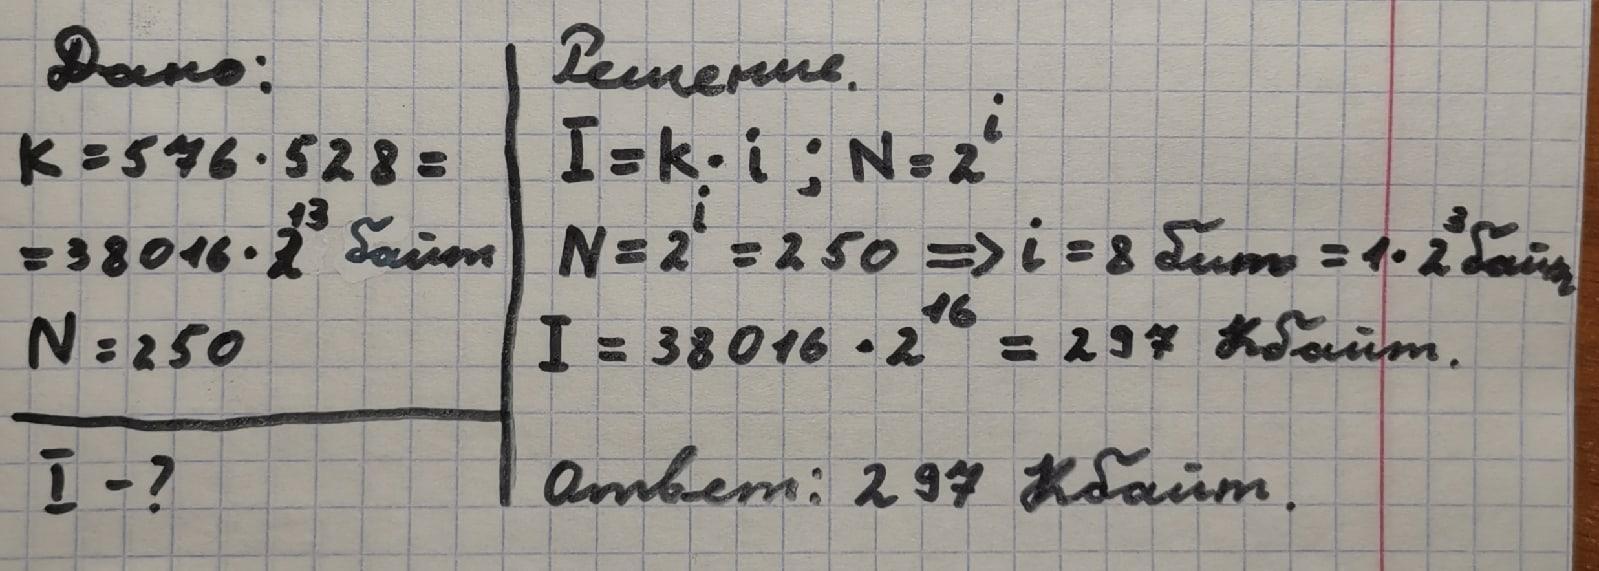 Дано:
K = 576 · 528 =
= 38016 · 2^13 байт
N = 250
I - ?
Решение.
I = k · i ; N = 2^i
N = 2^i = 250 => i = 8 бит = 1 · 2^3 байт
I = 38016 · 2^16 = 297 Кбайт.
Ответ: 297 Кбайт.